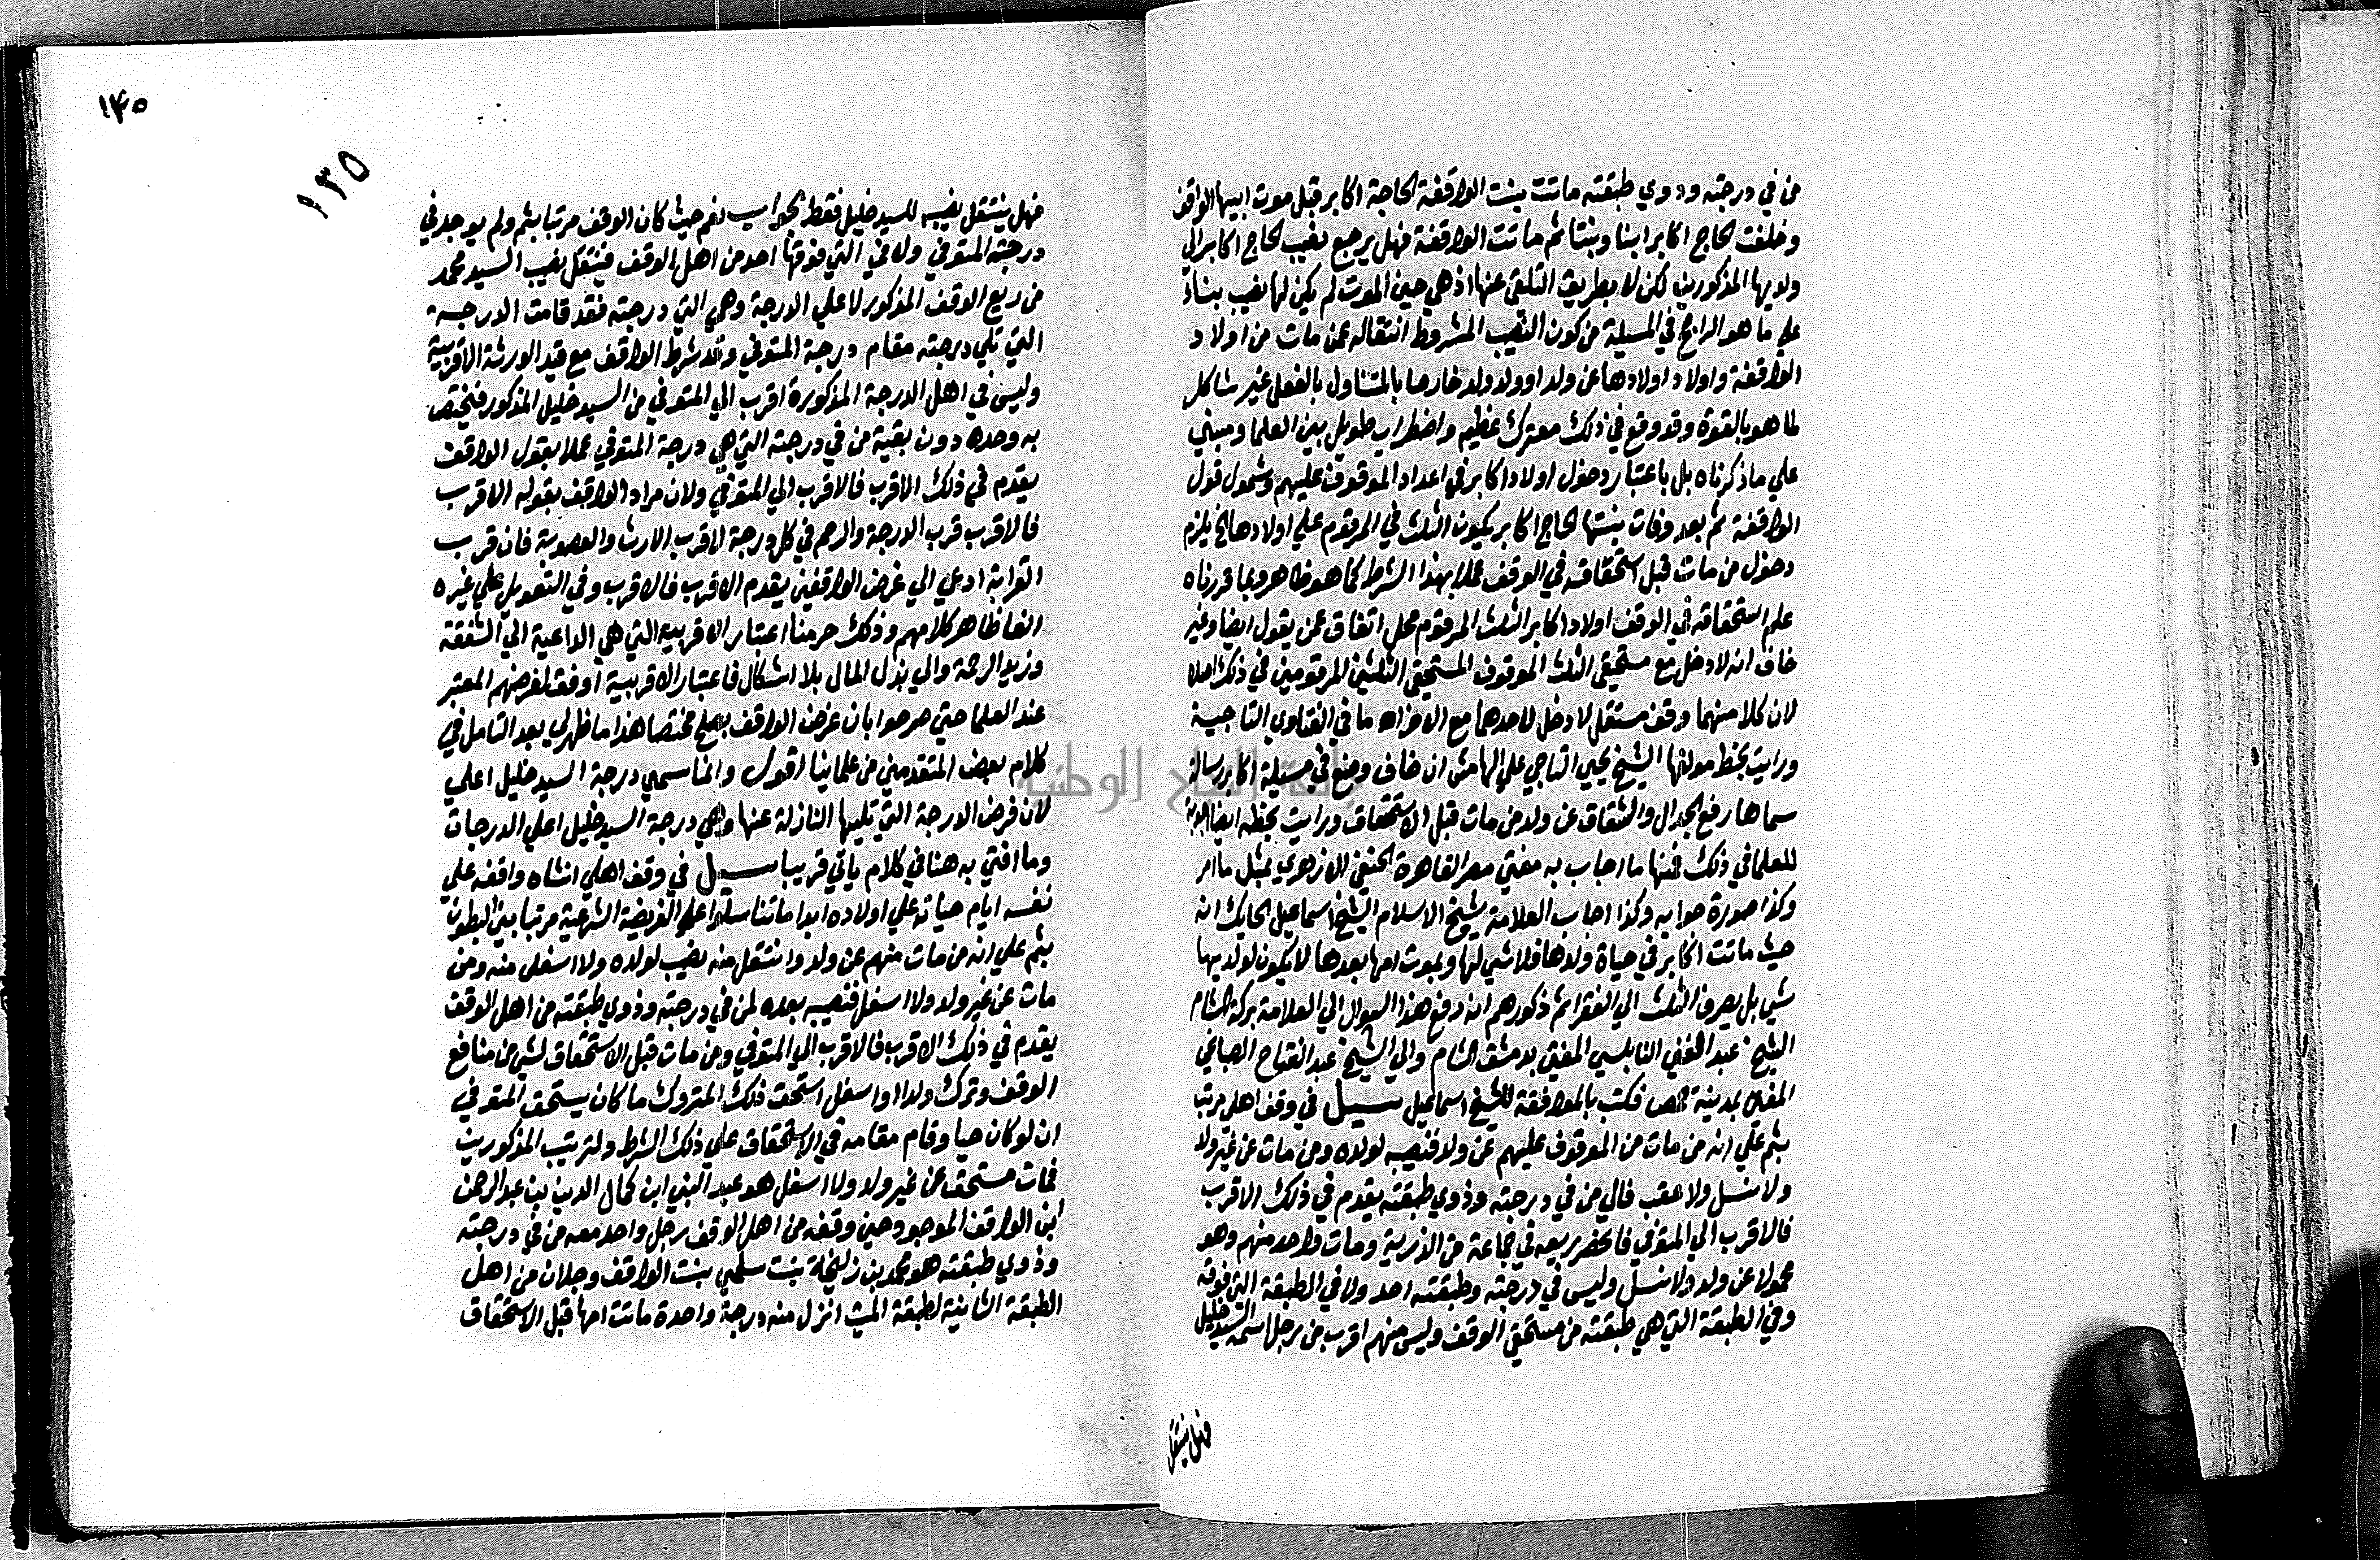 من في درجته وذوي طبقته ماتت بنت الواقفة الحاجة اكابر قبل موت ابيها الواقف
وخلفت الحاج اكابر ابنا وبنتا ثم ماتت الواقفة فهل يرجع نصيب الحاج اكابر الي
ولديها المذكورين لكن لا بطريق التلقي عنها اذ هي حين الموت لم يكن لها نصيب بناء
علي ما هو الراجح في المسيلة من كون النصيب المشروط انتقاله عمن مات من اولاد
الواقفة واولاد اولادها عن ولد او ولد ولد خاصا بالمتناول بالفعل غير شامل
لما هو بالقوة وقد وقع في ذلك معترك عظيم واضطراب طويل بين العلما ومبني
علي ما ذكرناه بل باعتبار دخول اولاد اكابر في اعداد الموقوف عليهم وشمول قول
الواقفة ثم بعد وفات بنتها الحاج اكابر يكون الثلث في المرقوم علي اولادها الخ يلزم
دخول من مات قبل استحقاقه في الوقف عملا بهذا الشرط كما هو ظاهر وبما قررناه
علم استحقاقه في الوقف اولاد اكابر الثلث المرقوم محل اتفاق عمن يقول ايضا وغير
خاف انه لا دخل مع مستحقي الثلث الموقوف المستحقي الثلثين المرقومين في ذلك اصلا
لان كلا منهما وقف مستقل لا دخل لاحدهما مع الاخر اه ما في الفتاوي التاجية
ورايت بخط مولفها الشيخ يحيي التاجي علي الهامش ان خاف وضع في مسيلة اكابر رسالة
سماها رفع الجدال والشقاق عن ولد من مات قبل الاستحقاق ورايت بخطه ايضا اجوبة
للعلما في ذلك فمنها ما اجاب به مفتي مصر القاهرة الحنفي الازهري بمثل ما مر
وكذا صورة جوابه وكذا اجاب العلامة شيخ الاسلام الشيخ اسماعيل الحايك انه
حيث ماتت اكابر في حياة ولدها فلا شي لها وبموت امها بعدها لا يكون لولديها
شي بل يصرف الثلث الي الفقرا ثم ذكورهم انه دفع هذا السوال الي العلامة بركة الشام
الشيخ عبد الغني النابلسي المفتي بدمشق الشام والي الشيخ عبد الفتاح السباعي
المفتي بمدينة حمص فكتب بالموافقة للشيخ اسماعيل سيل في وقف اهلي مرتبا
بثم علي انه من مات من الموقوف عليهم عن ولد فنصيبه لولده ومن مات عن غير ولد
ولا نسل ولا عقب فالي من في درجته وذوي طبقته يقدم في ذلك الاقرب
فالاقرب الي المتوفي فانحصر ريعه في جماعة من الذرية ومات واحد منهم وهو
محمد لا عن ولد ولا نسل وليس في درجته وطبقته احد ولا في الطبقة التي فوقه
وفي الطبقة التي هي طبقته من مستحقي الوقف وليس منهم اقرب من رجل اسمه السيد خليل
فهل ينتقل
١٤٥
١٣٥
فهل ينتقل نصيبه للسيد خليل فقط الجواب نعم حيث كان الوقف مرتبا بثم ولم يوجد في
درجة المتوفي ولا في التي فوقها احد من اهل الوقف فينتقل نصيب السيد محمد
من ريع الوقف المذكور لاعلي الدرجة وهي التي درجته فقد قامت الدرجة
التي تلي درجته مقام درجة المتوفي وقد شرط الواقف مع قيد الورثة الاقربية
وليس في اهل الدرجة المذكورة اقرب الي المتوفي من السيد خليل المذكور فيختص
به وحده دون بقية من في درجته التي هي درجة المتوفي عملا بقول الواقف
يقدم في ذلك الاقرب فالاقرب الي المتوفي ولان مراد الواقف بقوله الاقرب
فالاقرب قرب الدرجة والرحم في كل درجة لا قرب الارث والعصوبة فان قرب
القرابة ادعي الي غرض الواقفين يقدم الاقرب فالاقرب وفي التعويل علي غيره
الغا ظاهر كلامهم وذلك حرمنا اعتبار الاقربية التي هي الداعية الي الشفقة
وزيد الرحمة والي بذل المال بلا اشكال فاعتبار الاقربية اوفق لغرضهم المعتبر
عند العلما حتي صرحوا بان غرض الواقف يصلح مخصصا هذا ما ظهر لي بعد التامل في
كلام بعض المتقدمين من علماينا اقول وانما سمي درجة السيد خليل اعلي
لان فرض الدرجة التي تليها النازلة عنها وهي درجة السيد خليل اعلي الدرجات
وما افتي به هنا في كلام ياتي قريبا سيل في وقف اهلي انشاه واقفه علي
نفسه ايام حياته علي اولاده ابدا ما تناسلوا علي الفريضة الشرعية مرتبا بين البطون
بثم علي انه من مات منهم عن ولد وانتقل منه نصيب لولده ولا اسفل منه ومن
مات عن غير ولد ولا اسفل فنصيبه بعده لمن في درجته وذوي طبقته من اهل الوقف
يقدم في ذلك الاقرب فالاقرب الي المتوفي ومن مات قبل الاستحقاق لشي من منافع
الوقف وترك ولدا او اسفل استحق ذلك المتروك ما كان يستحق المتوفي
ان لو كان حيا وقام مقامه في الاستحقاق علي ذلك الشرط ولترتيب المذكورين
فمات مستحق عن غير ولد ولا اسفل هو عبد النبي ابن كمال الدين بن عبد الرحمن
ابن الواقف الموجود حين وقفه من اهل الوقف رجل واحد معه من في درجته
وذوي طبقته هو محمد بن زليخة بنت سلمي بنت الواقف وجلان من اهل
الطبقة الثانية لطبقة الميت انزل منه درجة واحدة ماتت امها قبل الاستحقاق